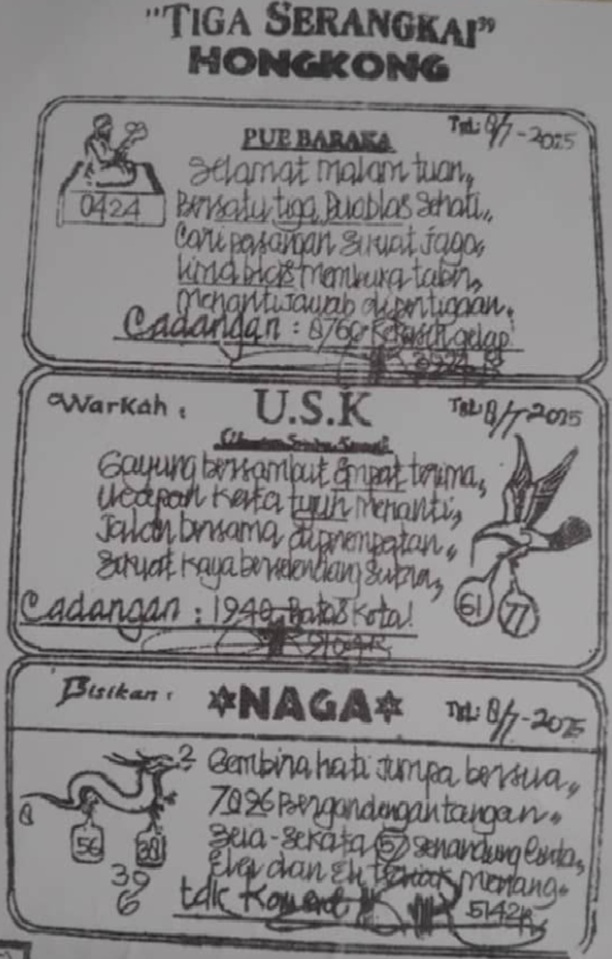 "TIGA SERANGKAI"
HONGKONG
PUE BARAKA
TGL: 8/7-2025
0424
Selamat malam tuan,,
Bersatu tiga Duablas Sehati,,
Cari pasangan Suryat Jaga,
Lima membuka tabir,,
Menanti Jawab di pertigaan.
Cadangan : 8760 gelap!
Warkah :
U.S.K
TGL: 8/7-2025
Gayung bersambut Empat terima,,
Ucapan Kerta tujuh menanti,,
Jalan bersama diperempatan,,
Suryat Kaya berselendang Sutra,,
61
77
Cadangan : 1940 Batas Kota!
Bisikan :
*NAGA*
TGL: 8/7-2025
2
8
Gembira hati Jumpa bersua,,
7026 Bergandengan tangan,,
Seia-Sekata 57 Senandung Cinta,,
56
38
39
6
dan menang.
tdk
5142